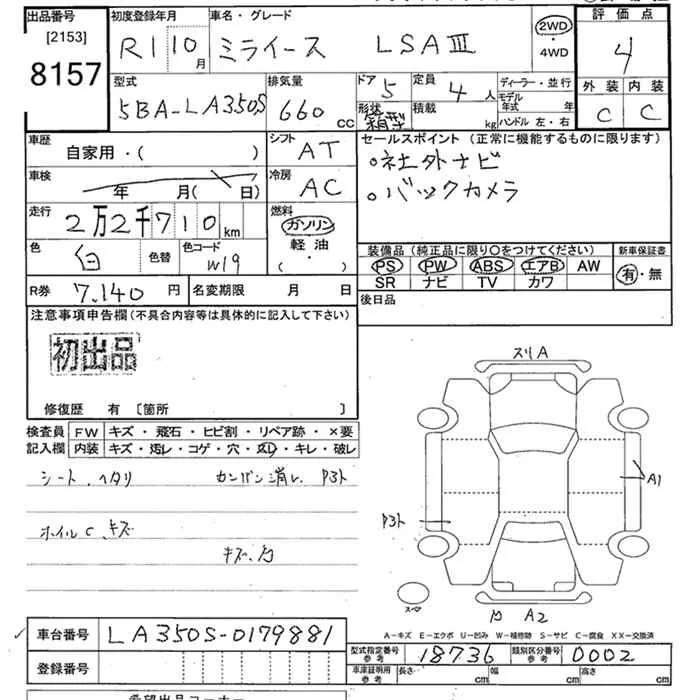 出品番号 [2153] 8157
初度登録年月 R1 10月
車名・グレード ミライース LSAⅢ
2WD・4WD
評価点 4
外装 C 内装 C
型式 5BA-LA350S
排気量 660 CC
ドア 5
形状 箱型
定員 4人
積載 kg
ディーラー・並行
モデル年式 年
ハンドル 左・右
車歴 自家用・( )
シフト AT
セールスポイント (正常に機能するものに限ります)
○社外ナビ
○バックカメラ
車検 年 月( 日)
冷房 AC
走行 2万2千710km
燃料 ガソリン 軽油 ( ・ )
色 白 色替 色コード W19
装備品 (純正品に限り○をつけてください)
PS PW ABS エアB AW
SR ナビ TV カワ
新車保証書 有・無
R券 7,140円
名変期限 月 日
後日品
注意事項申告欄(不具合内容等は具体的に記入して下さい)
初出品
修復歴 有 [箇所 ]
検査員記入欄
FW キズ・飛石・ヒビ割・リペア跡・×要
内装 キズ・汚レ・コゲ・穴・スレ・キレ・破レ
シート、ヘタリ
ホイルC、キズ
スリA
A1
A2
スペア
A-キズ E-エクボ U-凹み W-補修跡 S-サビ C-腐食 XX-交換済
車台番号 LA350S-0179881
登録番号
型式指定番号 参考 18736
類別区分番号 参考 0002
車庫証明用 参考 長さ cm 幅 cm 高さ cm
希望出品コーナー